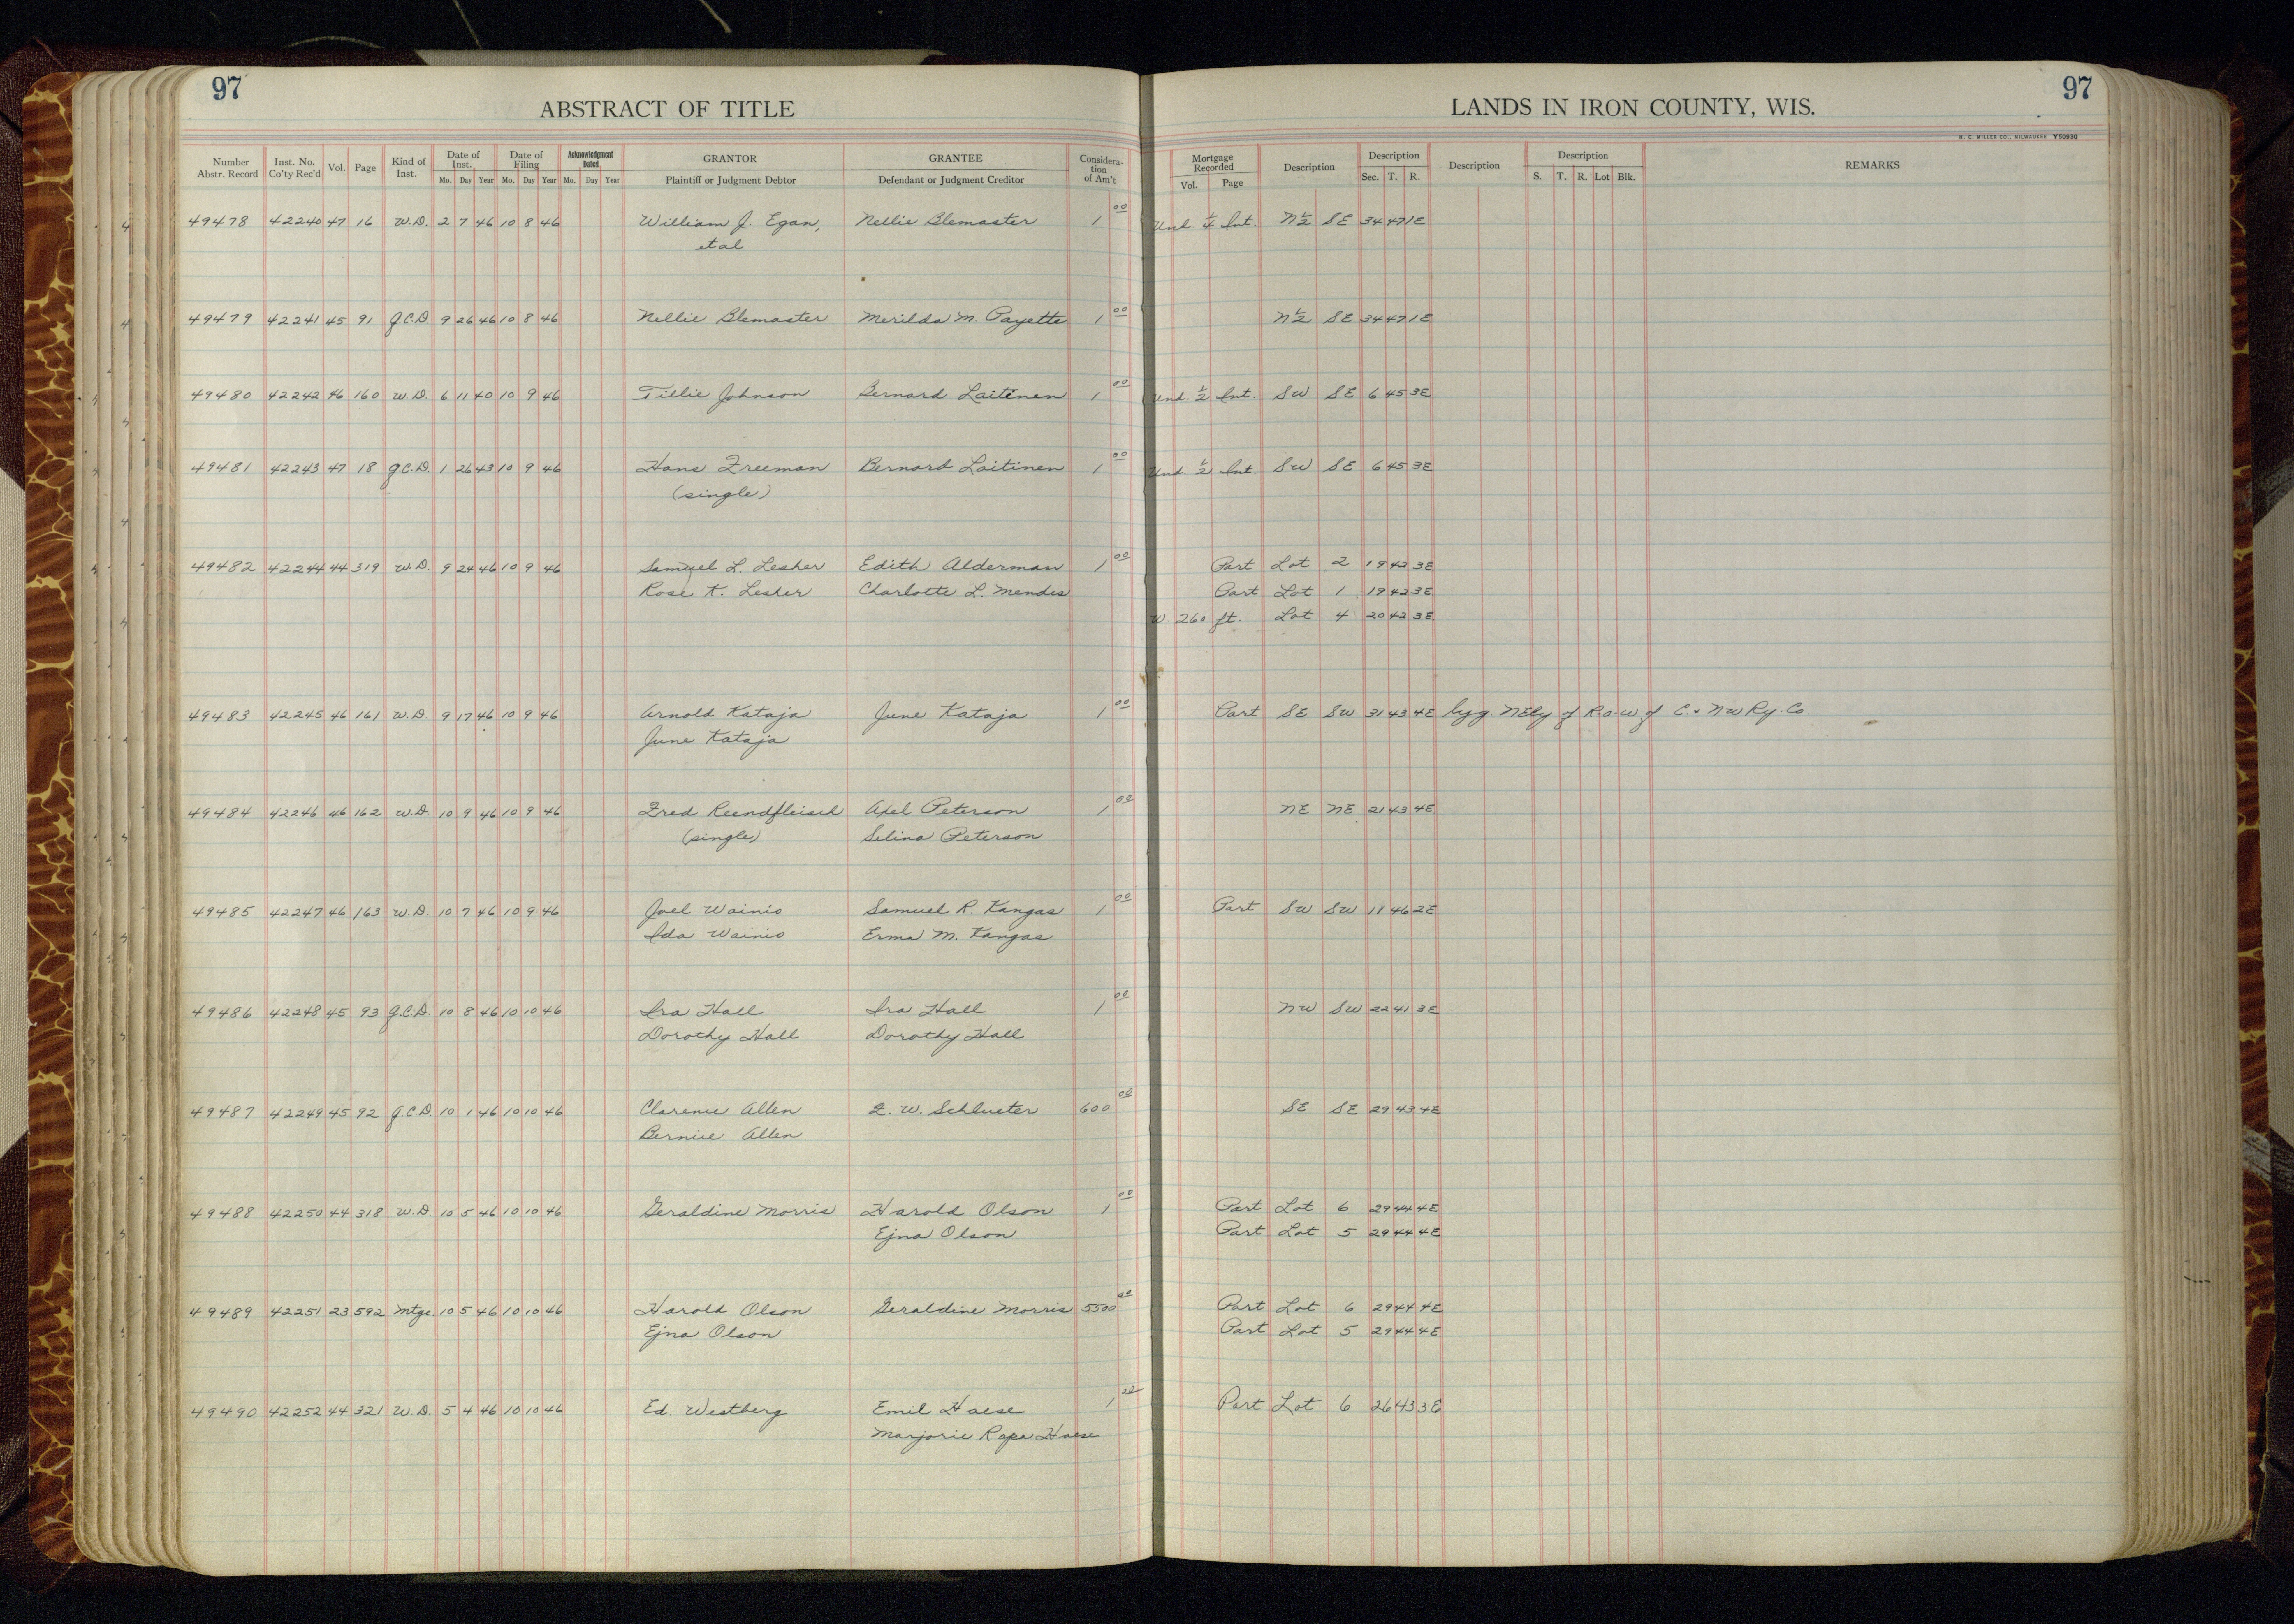 97
97
ABSTRACT OF TITLE
LANDS IN IRON COUNTY, WIS.
H. C. MILLER CO., MILWAUKEE Y50930
Number Abstr. Record Inst. No. Co'ty Rec'd Vol. Page Kind of Inst. Date of Inst. Mo. Day Year Date of Filing Mo. Day Year Acknowledgment Dated Mo. Day Year GRANTOR Plaintiff or Judgment Debtor GRANTEE Defendant or Judgment Creditor Considera-tion of Am't Mortgage Recorded Vol. Page Description Description Sec. T. R. Description Description S. T. R. Lot Blk. REMARKS
49478 42240 47 16 W.D. 2 7 46 10 8 46 William J. Egan, Nellie Blemaster 1 00 Und. 1/4 Int. N 1/2 SE 34 47 1E
et al
49479 42241 45 91 Q.C.D. 9 26 46 10 8 46 Nellie Blemaster Merilda M. Payette 1 00 N 1/2 SE 34 47 1E
49480 42242 46 160 W.D. 6 11 40 10 9 46 Tillie Johnson Bernard Laitinen 1 00 Und. 1/2 Int. SW SE 6 45 3E
49481 42243 47 18 Q.C.D. 1 26 43 10 9 46 Hans Freeman Bernard Laitinen 1 00 Und. 1/2 Int. SW SE 6 45 3E
(single)
49482 42244 44 319 W.D. 9 24 46 10 9 46 Samuel L. Lesher Edith Alderman 1 00 Part Lot 2 19 42 3E
Rose K. Lesher Charlotte L. Mendes Part Lot 1 19 42 3E
W. 260 ft. Lot 4 20 42 3E
49483 42245 46 161 W.D. 9 17 46 10 9 46 Arnold Kataja June Kataja 1 00 Part SE SW 31 43 4E lyg. NEly of R-o-W of C. & NW Ry. Co.
June Kataja
49484 42246 46 162 W.D. 10 9 46 10 9 46 Fred Reendfleisch Axel Peterson 1 00 NE NE 21 43 4E
(single) Selina Peterson
49485 42247 46 163 W.D. 10 7 46 10 9 46 Joel Wainio Samuel R. Kangas 1 00 Part SW SW 11 46 2E
Ida Wainio Erma M. Kangas
49486 42248 45 93 Q.C.D. 10 8 46 10 10 46 Ira Hall Ira Hall 1 00 NW SW 22 41 3E
Dorothy Hall Dorothy Hall
49487 42249 45 92 Q.C.D. 10 1 46 10 10 46 Clarence Allen F. W. Schlueter 600 00 SE SE 29 43 4E
Bernice Allen
49488 42250 44 318 W.D. 10 5 46 10 10 46 Geraldine Morris Harold Olson 1 00 Part Lot 6 29 44 4E
Ejna Olson Part Lot 5 29 44 4E
49489 42251 23 592 Mtge. 10 5 46 10 10 46 Harold Olson Geraldine Morris 5500 00 Part Lot 6 29 44 4E
Ejna Olson Part Lot 5 29 44 4E
49490 42252 44 321 W.D. 5 4 46 10 10 46 Ed. Westberg Emil Haese 1 00 Part Lot 6 26 43 3E
Marjorie Rapa Haese